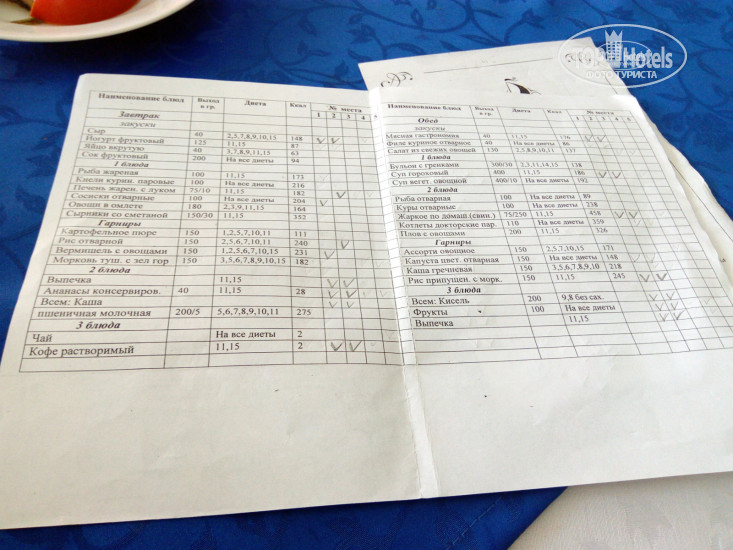 TopHotels
ФОТО ТУРИСТА
Наименование блюд Выход в гр. Диета Ккал № места
1 2 3 4
Завтрак
закуски
Сыр 40 2,5,7,8,9,10,15 148
Йогурт фруктовый 125 11,15 87
Яйцо вкрутую 40 3,7,8,9,11,15 63
Сок фруктовый 200 На все диеты 94
1 блюда
Рыба жареная 100 11,15 173
Кнели курин. паровые 100 На все диеты 216
Печень жарен. с луком 75/10 11,15 182
Сосиски отварные 100 На все диеты 204
Овощи в омлете 180 2,3,9,11,15 164
Сырники со сметаной 150/30 11,15 352
Гарниры
Картофельное пюре 150 1,2,5,7,10,11 111
Рис отварной 150 2,5,6,7,10,11 240
Вермишель с овощами 150 1,2,5,6,7,10,15 231
Морковь туш. с зел гор 150 3,5,6,7,8,9,10,15 182
2 блюда
Выпечка 11,15
Ананасы консервиров. 40 11,15 28
Всем: Каша
пшеничная молочная 200/5 5,6,7,8,9,10,11 275
3 блюда
Чай На все диеты 2
Кофе растворимый 11,15 2
Наименование блюд Выход в гр. Диета Ккал № места
1 2 3 4 5
Обед
закуски
Мясная гастрономия 40 11,15 176
Филе куриное отварное 40 На все диеты 86
Салат из свежих овощей 150 2,5,8,9,11,15
1 блюда
Бульон с гренками 300/30 2,3,11,14,15 138
Суп гороховый 400 11,15 186
Суп вегет. овощной 400/10 На все диеты 192
2 блюда
Рыба отварная 100 На все диеты 89
Куры отварные 100 На все диеты 238
Жаркое по домаш.(свин.) 75/250 11,15 458
Котлеты докторские пар. 110 На все диеты 359
Плов с овощами 200 11,15 326
Гарниры
Ассорти овощное 150 2,5,7,10,15 171
Капуста цвет. отварная 150 На все диеты 148
Каша гречневая 150 3,5,6,7,8,9,10 218
Рис припущен. с морк. 150 11,15 245
3 блюда
Всем: Кисель 200 9,8 без сах.
Фрукты 100 На все диеты
Выпечка 11,15